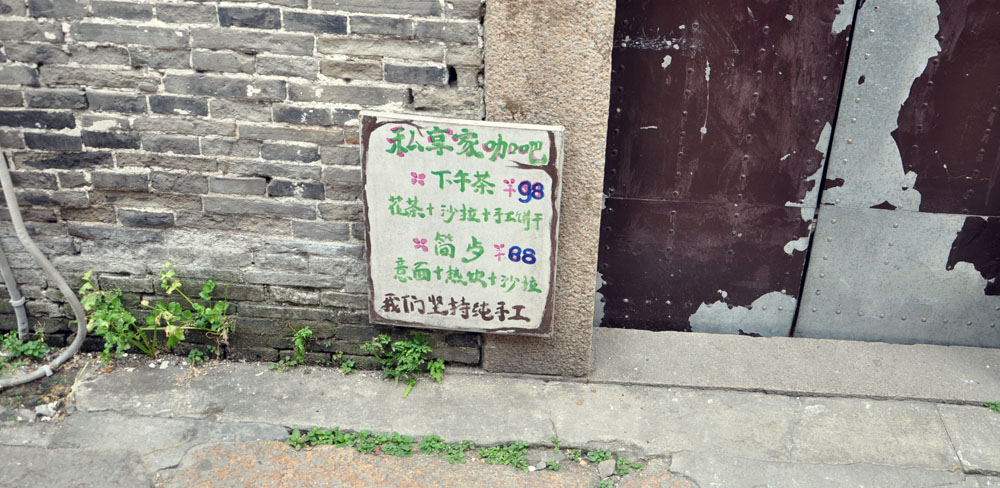 私享家咖吧
下午茶 ¥98
花茶+沙拉+手工饼干
简歺 ¥88
意面+热饮+沙拉
我们坚持纯手工